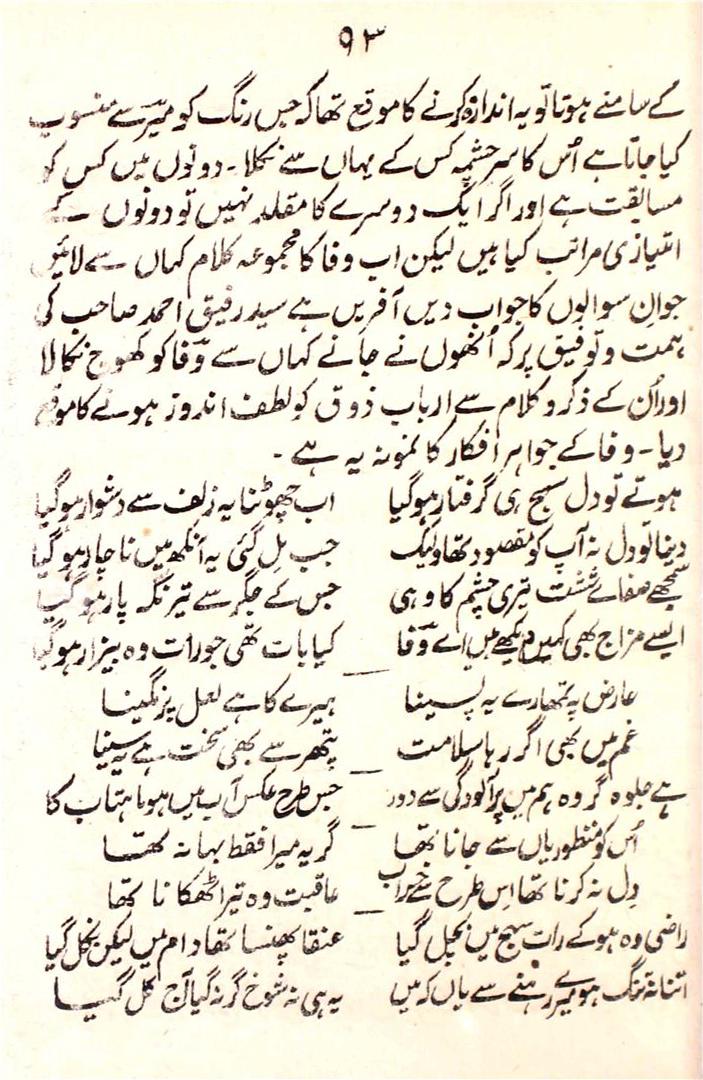 ۹۳
کے سامنے ہوتا تو یہ اندازہ کرنے کا موقع تھا کہ جس رنگ کو میرؔ سے منسوب
کیا جاتا ہے اُس کا سرچشمہ کس کے یہاں سے نکلا۔ دونوں میں کس کو
مسابقت ہے اور اگر ایک دوسرے کا مقلد نہیں تو دونوں کے
امتیازی مراتب کیا ہیں لیکن اب وفا کا مجموعہ کلام کہاں سے لائیں
جو ان سوالوں کا جواب دیں آفریں ہے سید رفیق احمد صاحب کی
ہمت و توفیق پر کہ اُنھوں نے جانے کہاں سے وؔفا کو کھوج نکالا
اور اُن کے ذکر و کلام سے ارباب ذوق کو لطف اندوز ہونے کا موقع
دیا۔ وفا کے جواہر افکار کا نمونہ یہ ہے ۔
ہوتے تو دل سبج ہی گرفتار ہو گیا اب چھوٹنا یہ زلف سے دشوار ہو گیا
دینا تو دل نہ آپ کو مقصود تھا ولیک جب مِل گئی یہ آنکھ میں ناچار ہو گیا
سمجھے صفائے شست تیری چشم کا وہی جس کے جگر سے تیر نگہ پار ہو گیا
ایسے مزاج بھی کہیں دیکھے ہیں اے وؔفا کیا بات تھی جو رات وہ بیزار ہو گیا
عارض پہ تمھارے یہ پسینا ہیرے کا ہے لعل پر نگینا
غم میں بھی اگر رہا سلامت پتھر سے بھی سخت ہے یہ سینا
ہے جلوہ گر وہ ہم میں پر آلودگی سے دور جس طرح عکس آب میں ہو ماہتاب کا
اُس کو منظور یاں سے جانا تھا گریہ میرا فقط بہانہ تھا
دِل نہ کرنا تھا اِس طرح سے خراب عاقبت وہ تیرا ٹھکانا تھا
راضی وہ ہو کے رات سبج میں بچل گیا عنقا پھنسا تھا دام میں لیکن نکل گیا
اتنا نہ تنگ ہو میرے رہنے سے یاں کہ میں یہ ہی نہ شوخ گر نہ گیا آج کل گیا